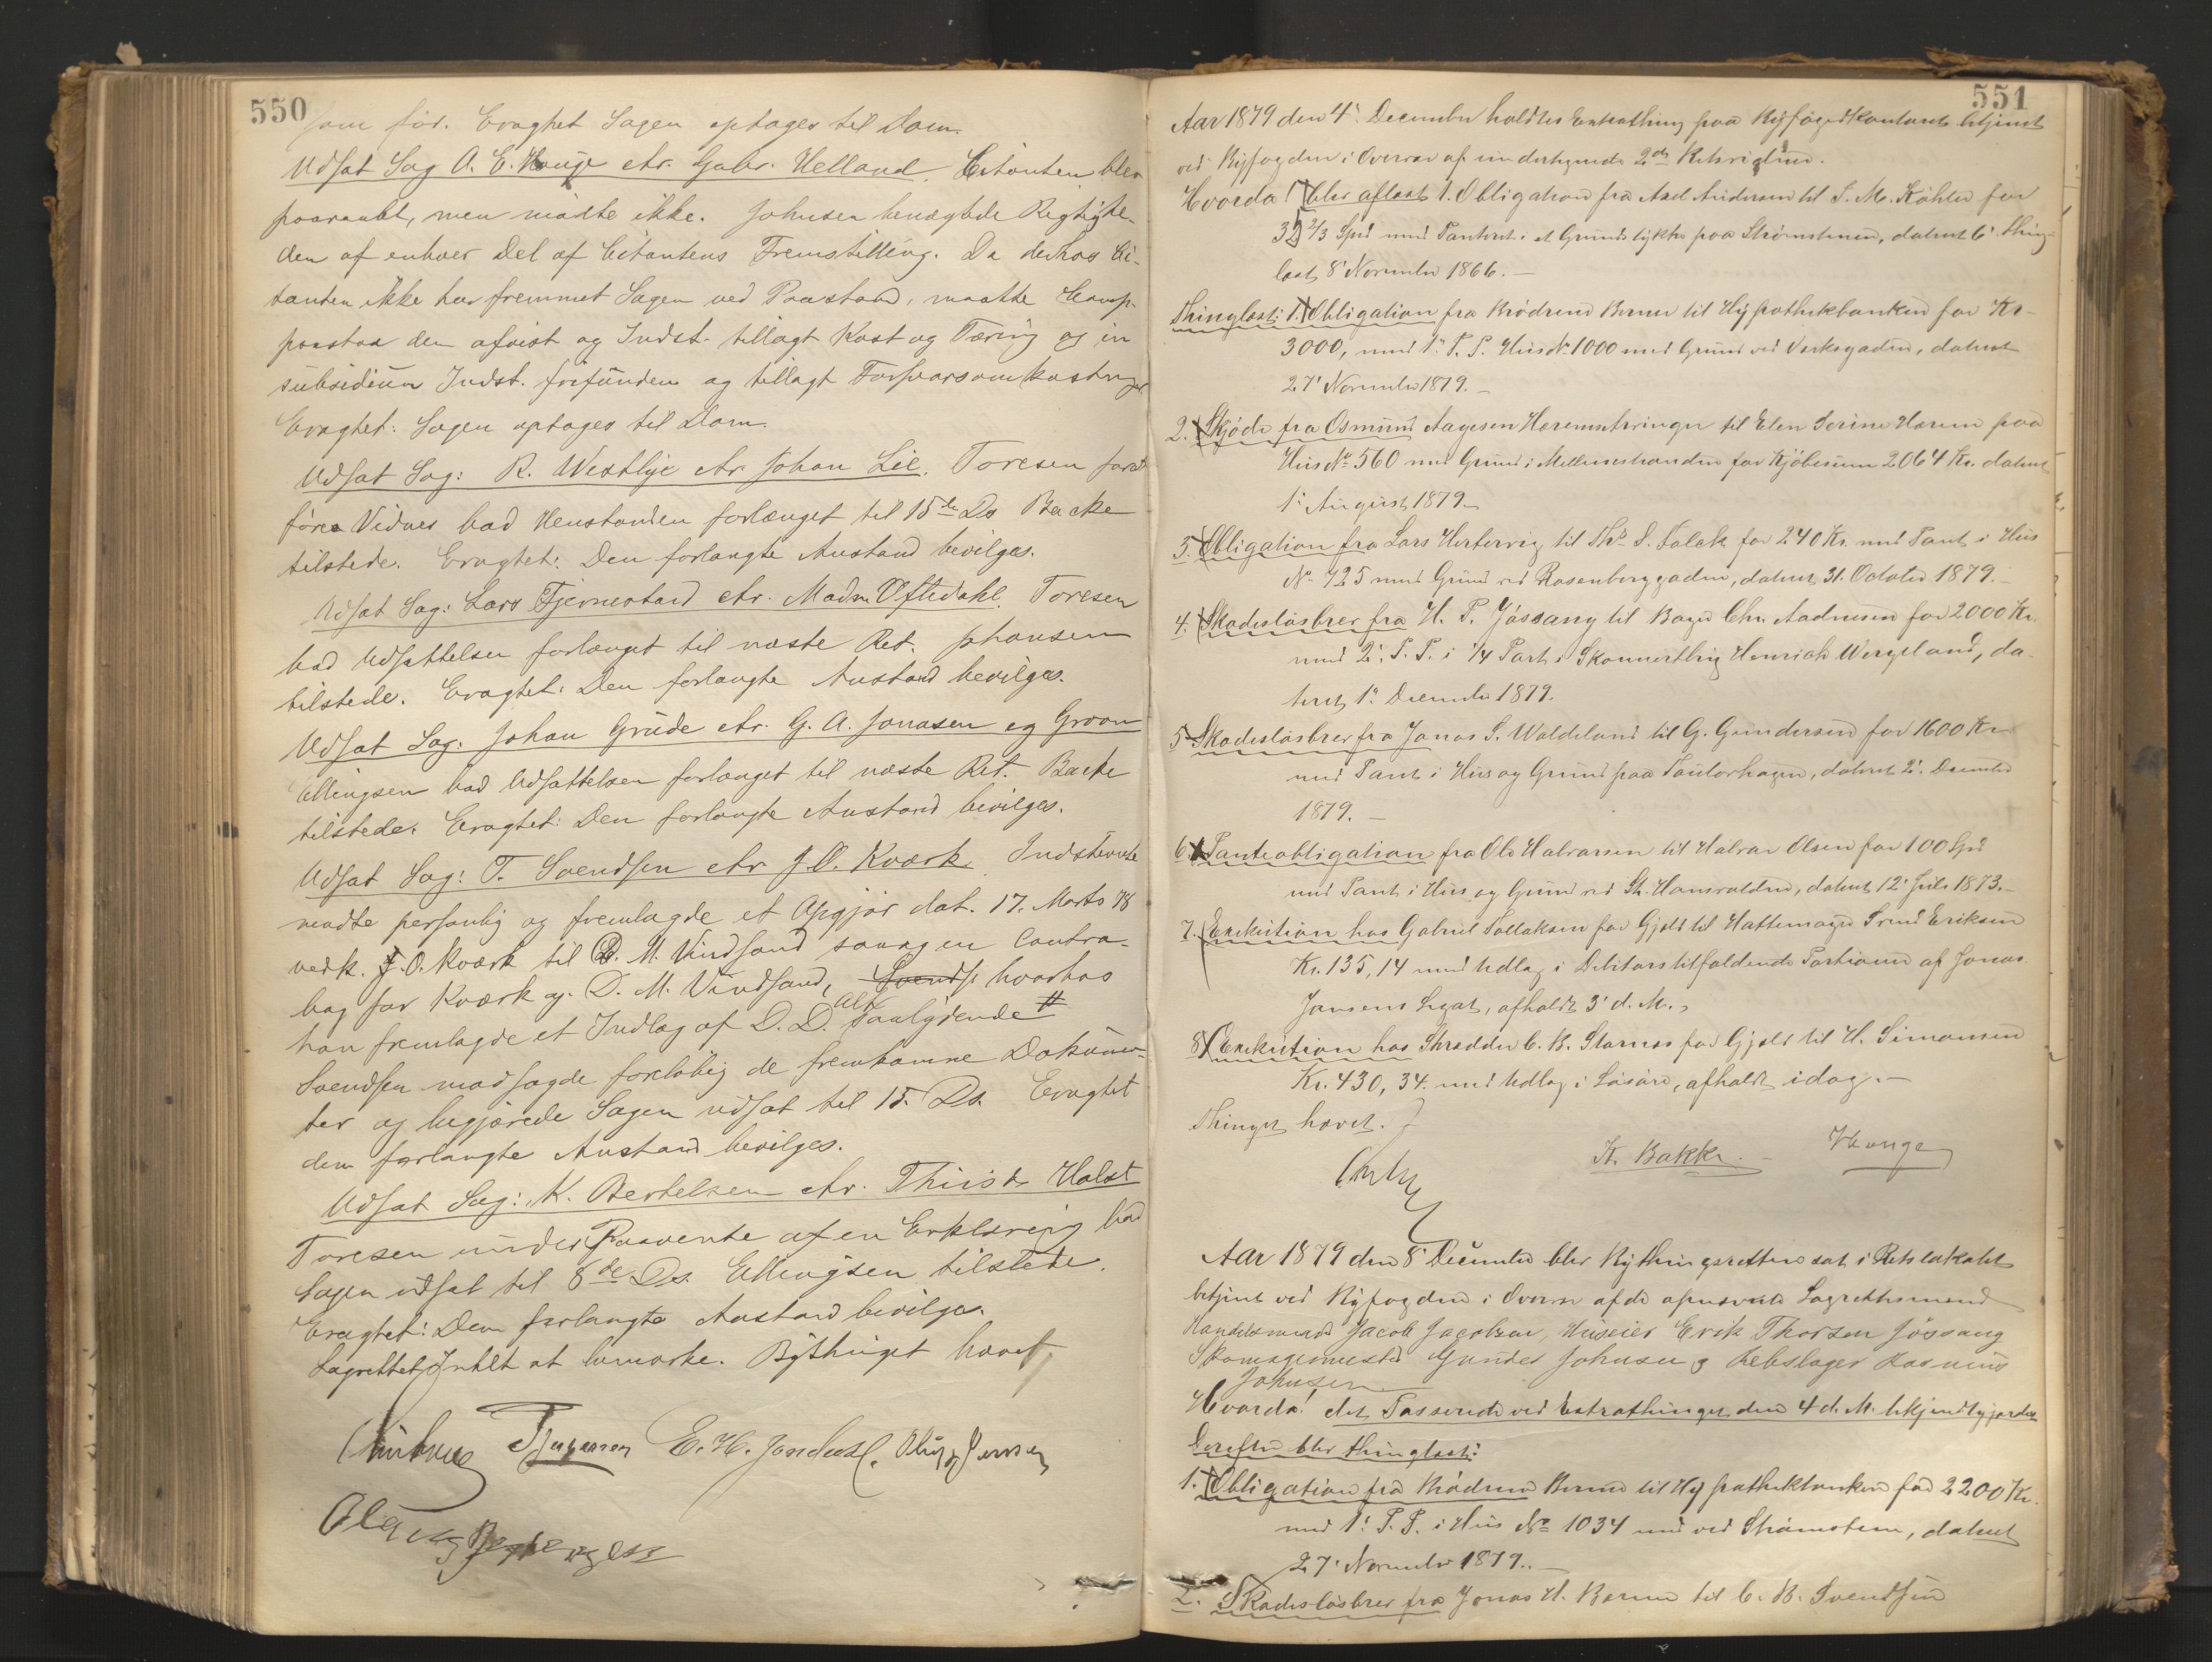 550
som før. Eragtet Sagen optages til Dom.
Udsat Sag A. E. Hauge ctr. Gabr. Helland. Citanten blev
paaraabt, men mødte ikke. Johnsen benægtede Rigtighe-
den af enhver Del af Citantens Fremstilling. Da derhos Ci-
tanten ikke har fremmet Sagen ved Paastand, maatte Comp.
paastaa den afvist og Indst. tillagt Kost og Tæring og in
subsidium Indst. frifunden og tillagt Forsvarsomkostninger
Eragtet: Sagen optages til Dom.
Udsat Sag: R. Westlye ctr. Johan Lie. Toresen for at
føre Vidner bad Henstanden forlænget til 15de Ds Backe
tilstede. Eragtet: Den forlangte Anstand bevilges.
Udsat Sag: Lars Tjernestad ctr. Madm Oftedahl. Toresen
bad Udsættelsen forlænget til næste Ret. Johnsen
tilstede. Eragtet: Den forlangte Anstand bevilges.
Udsat Sag: Johan Grude ctr. G. A. Jonasen og Groom
Ellingsen bad Udsættelsen forlænget til næste Ret. Backe
tilstede. Eragtet: Den forlangte Anstand bevilges.
Udsat Sag: T. Svendsen ctr J. O. Kværk. Indstevnte
mødte personlig og fremlagde et Opgjør dat. 17. Marts 78
vedk. J. O. Kværk til D. M. Vindsand samt en Contra-
bog for Kværk og D. M. Vindsand, Svends hvorhos
han fremlagde et Indlæg af D. D. Alt saalydende #
Svendsen modsagde foreløbig de fremkomne Dokumen-
ter og begjærede Sagen udsat til 15. Ds. Eragtet
den forlangte Anstand bevilges.
Udsat Sag: K. Bertelsen ctr. Thiis & Holst
Toresen under Paavente af en Erklæring bad
Sagen udsat til 8de Ds. Ellingsen tilstede.
Eragtet: Den forlangte Anstand bevilges.
Lagrettet Intet at bemærke. Bythinget hævet
E. H. Jondahl.
551
Aar 1879 den 4' December holdtes Extrathing paa Byfogedkontoret betjent
ved Byfogden i Overvær af undertegnede 2de Retsvidner.
Hvorda! blev aflæst 1. Obligation fra Axel Andersen til S. M. Köhler for
35 2/3 Spd med Panteret i et Grundstykke paa Strømstenen, dateret 6' thing-
læst 8' November 1866.
Thinglæst: 1. Obligation fra Brødrene Berner til Hypothekbanken for Kr
3000, med 1' P. P. Hus No 1000 med Grund ved Verksgaden, dateret
27' November 1879.
2. Skjøde fra Osmund Aagesen Haremstvinger til Elen Serine Harem paa
Hus No 560 med Grund i Mellemstranden for Kjøbesum 2064 Kr. dateret
1' August 1879
3. Obligation fra Lars Hertervig til Ths. S. Falck for 240 Kr. med Pant i Hus
No 725 med Grund ved Rosenberggaden, dateret 31. October 1879.
4. Skadesløsbrev fra H. P. Jøssang til Bager Chr. Aadnesen for 2000 Kr.
med 2' P. P. i 1/4 Part i Skonnertbrig Henrich Wergeland, da-
teret 1' December 1879.
5 Skadesløsbrev fra Jonas S. Waldeland til G. Gundersen for 1600 Kr
med Pant i Hus og Grund paa Taulorhagen, dateret 2' December
1879.
6. Panteobligation fra Ole Halvorsen til Halvor Olsen for 100 Spd
med Pant i Hus og Grund ved St. Hansvolden, dateret 12' Juli 1873.
7. Exekution hos Gabriel Tollaksen for Gjæld til Hattemager Trend Eriksen
Kr. 135,14 med Udlæg i Debitors tilfaldende Portioner af Jonas
Jansens Legat, afholdt 3' d. M.
8. Exekution hos Skrædder C. B. Starnes for Gjæld til H. Simonsen
Kr. 430, 34. med Udlæg i Løsøre, afholdt idag.
Thinget hævet.
K. Bakke.
Hauge
Aar 1879 den 8' December blev Bythingsretten sat i Retslokalet
betjent ved Byfogden i Overvær af de opnævnte Lagrettesmænd
Handelsmænd Jacob Jacobsen, Huseier Erik Thorsen Jøssang
Skomagermester Gunder Johnsen og Rebslager Rasmus
Johnsen
Hvorda! det Passerede ved Extrathinget den 4 d. M. bekjendtgjordes
Derefter blev thinglæst:
1. Obligation fra Brødrene Berner til Hypothekbanken for 2200 Kr.
med 1' P. P. i Hus No 1034 med ved Strømsten, dateret
27' November 1879.
2. Skadesløsbrev fra Jonas H. Berner til C. B. Svendsen